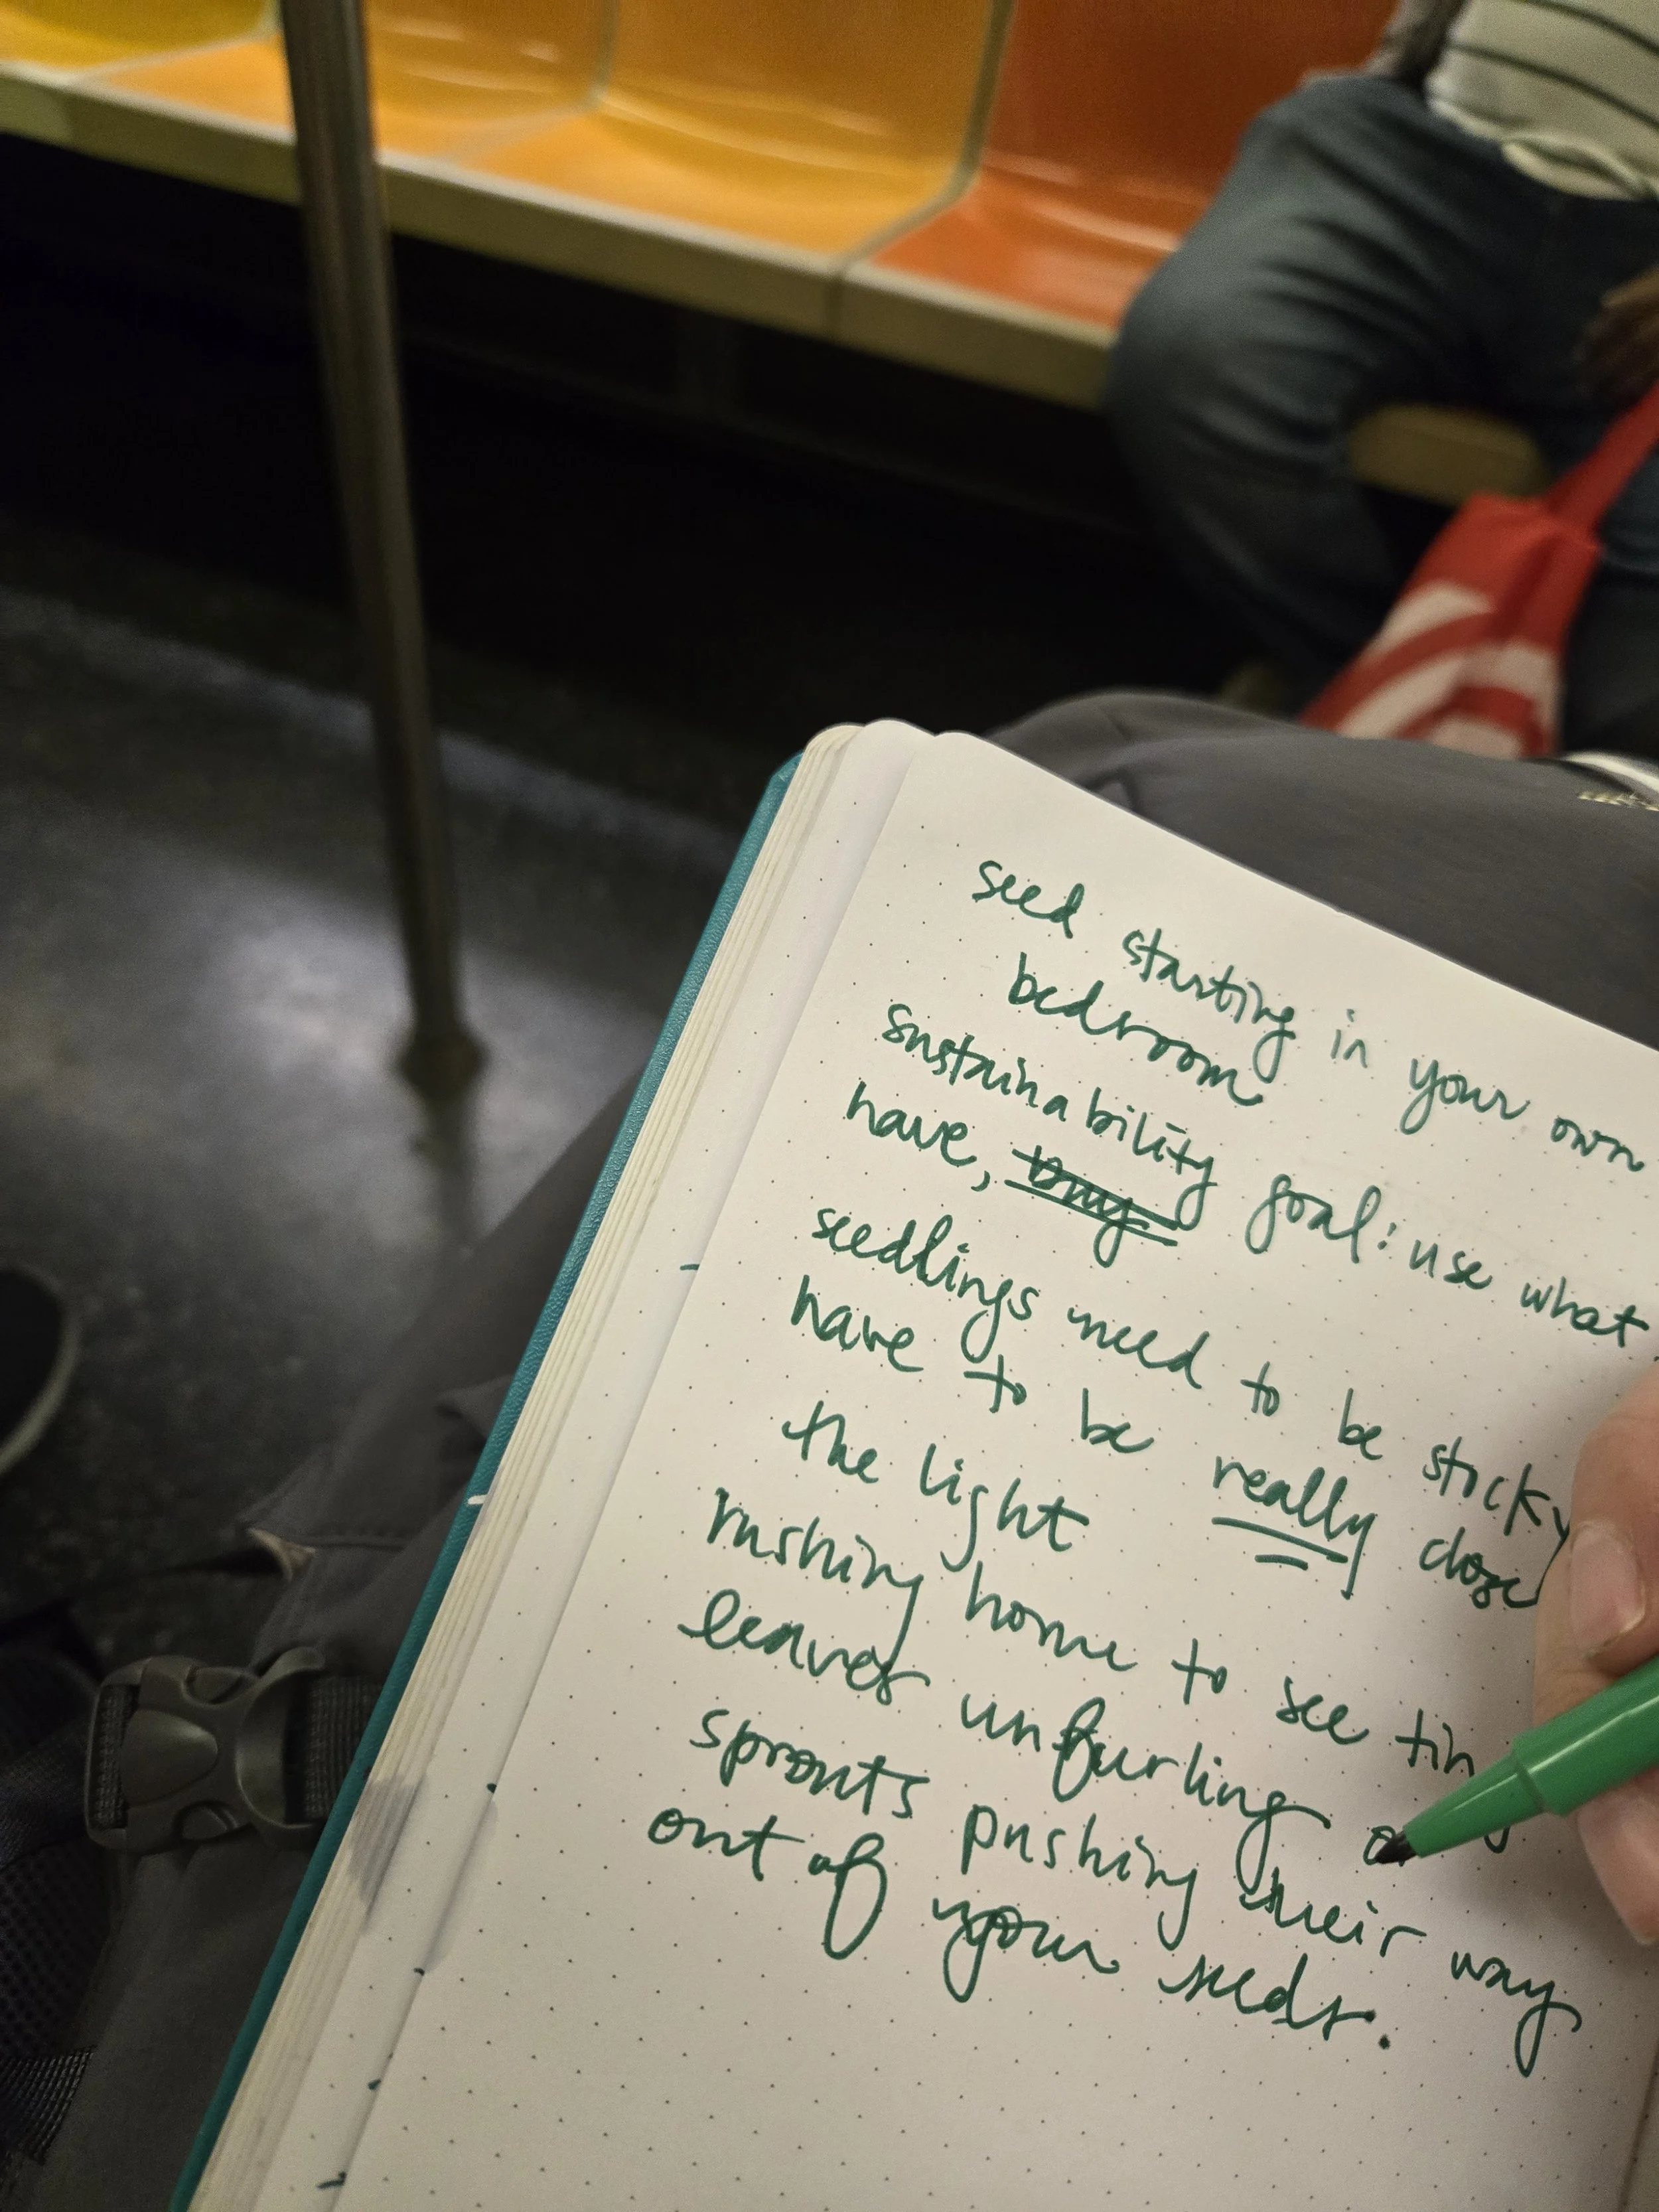 seed starting in your own
bedroom
sustainability goal: use what
have, buy
seedlings need to be sticky
have to be really close
the light
rushing home to see
leaves unfurling
sprouts pushing their way
out of your seeds.